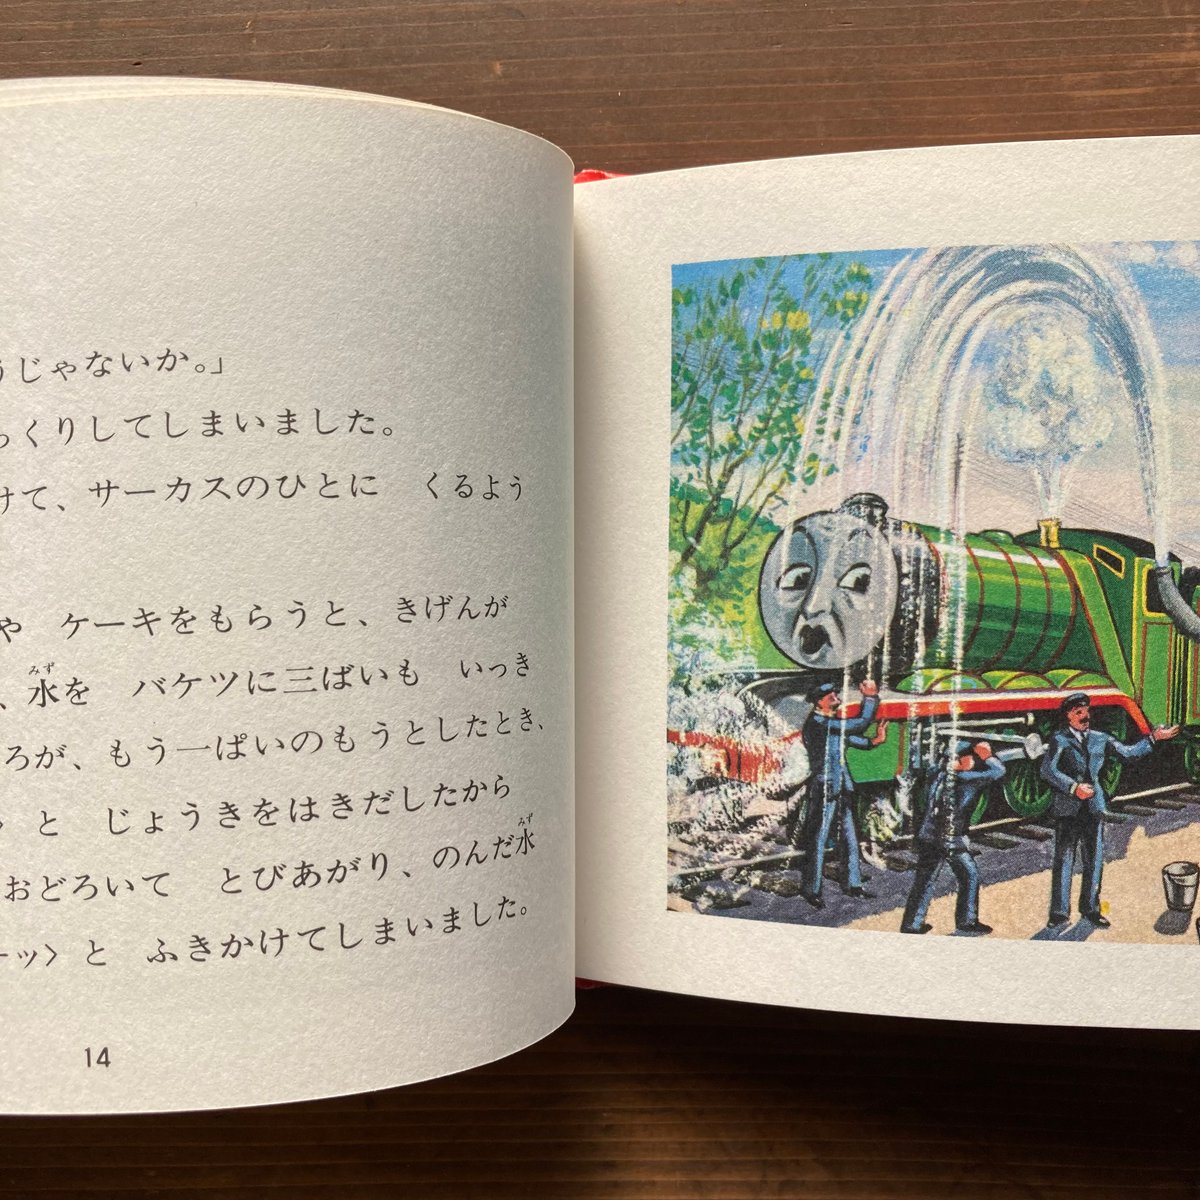 うじゃないか。」
っくりしてしまいました。
けて、サーカスのひとに　くるよう
や　ケーキをもらうと、きげんが
、水を　バケツに三ばいも　いっき
みず
ろが、もう一ぱいのもうとしたとき、
と　じょうきをはきだしたから
おどろいて　とびあがり、のんだ水
みず
ーッ〉と　ふきかけてしまいました。
14